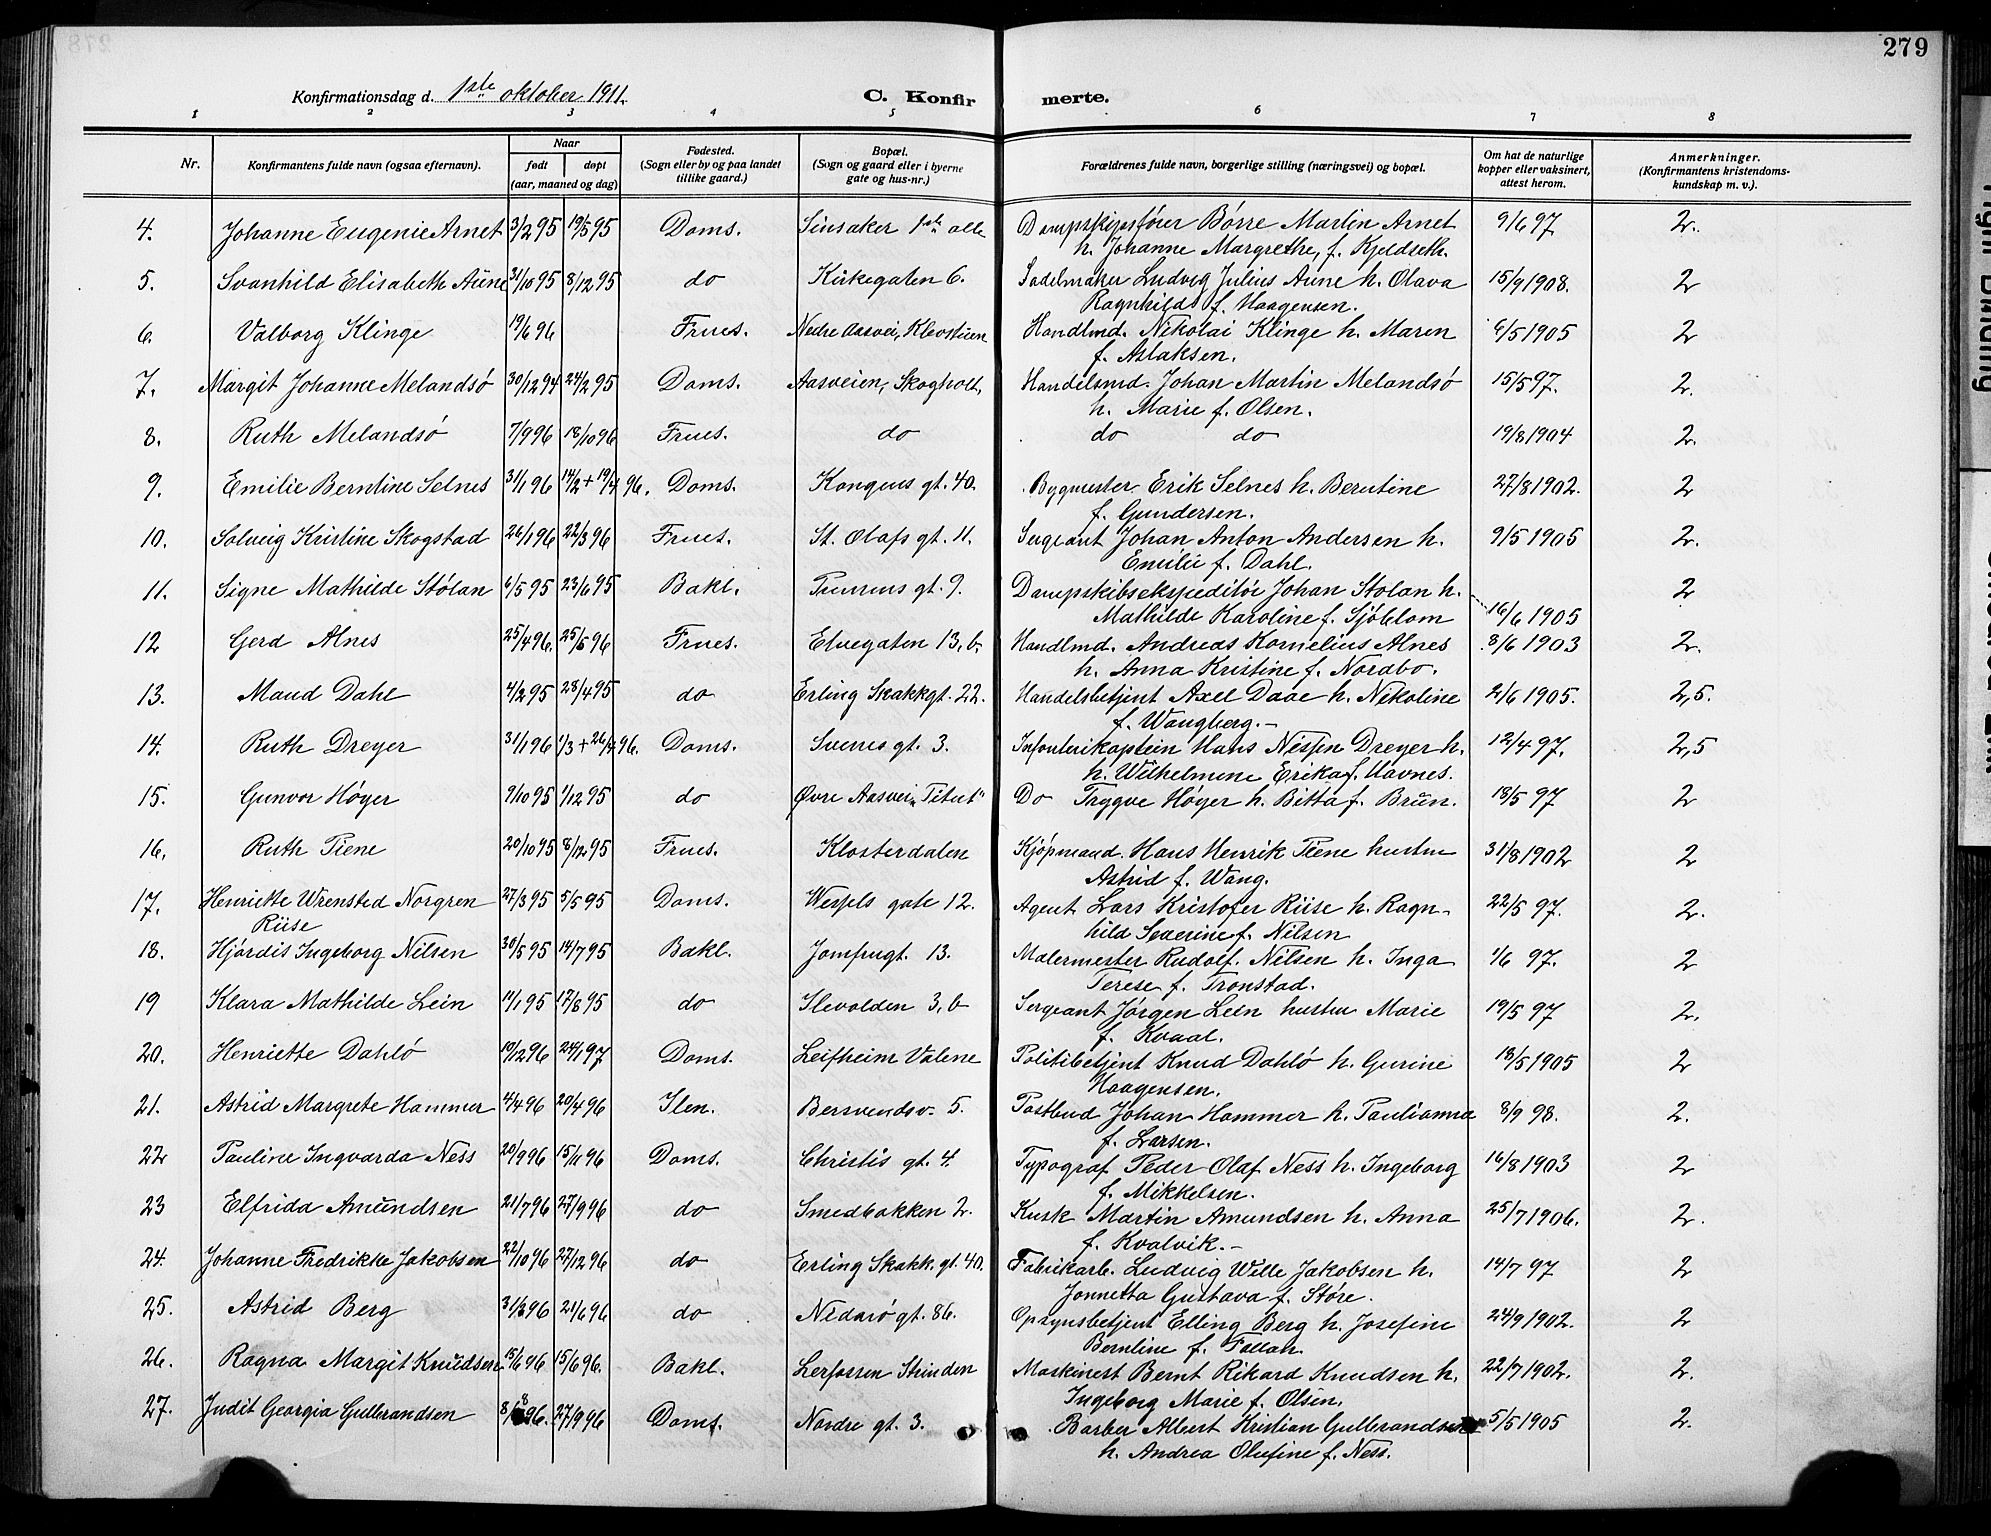 279
Konfirmationsdag d. 1ste oktober 1911.
C. Konfirmerte.
1 2 3 4 5 6 7 8
Nr. Konfirmantens fulde navn (ogsaa efternavn). Naar født døpt (aar, maaned og dag) Fødested. (Sogn eller by og paa landet tillike gaard.) Bopæl. (Sogn og gaard eller i byerne gate og hus-nr.) Forældrenes fulde navn, borgerlige stilling (næringsvei) og bopæl. Om hat de naturlige kopper eller vaksinert, attest herom. Anmerkninger. (Konfirmantens kristendomskundskap m. v.).
4. Johanne Eugenie Arnet 3/2 95 19/5 95 Doms. Sinsaker 1ste alle Dampskipsfører Børre Martin Arnet 9/6 97 2.
h. Johanne Margrethe, f. Kjeldseth.
5. Svanhild Elisabeth Aune 31/10 95 8/12 95 do Kirkegaten 6. Sadelmaker Ludvig Julius Aune h. Olava 15/9 1908. 2
Ragnhild f. Haagensen.
6. Valborg Klinge 19/6 96 Frues. Nedre Aasvei, Handlmd. Nikolai Klinge h. Maren 6/5 1905 2
f. Aslaksen.
7. Margit Johanne Melandsö 30/12 94 24/2 95 Doms. Aasveien, Skogholt, Handelsmd. Johan Martin Melandsö 15/5 97. 2.
h. Marie f. Olsen.
8. Ruth Melandsö 7/9 96 18/10 96 Frues. do do do 19/8 1904 2.
9. Emilie Berntine Selnes 31/1 96 14/2 + 19/4 96. Doms. Kongens gt. 40. Bygmester Erik Selnes h. Berntine 27/8 1902. 2
f. Gundersen.
10. Solveig Kristine Skogstad 26/1 96 22/3 96 Frues. St. Olafs gt. 11. Sergeant Johan Anton Andersen h. 9/5 1905 2.
Emilie f. Dahl.
11. Signe Mathilde Stölan 6/5 95 23/6 95 Bakl. gt. 9. Dampskibsekspeditör Johan Stolan h. 2
Mathilde Karoline f. Sjöblom 16/6 1905
12 Gerd Alnes 25/4 96. 25/5 96 Frues. Elvegaten 13, b. Handlmd. Andreas Kornelius Alnes 8/6 1903 2.
h. Anna Kristine f. Nordbo.
13. Maud Dahl 4/2 95 28/4 95 do Erling Skakkgt. 22. Handelsbetjent Axel Daae h. Nikoline 2/6 1905. 2,5.
f. Wangberg.-
14. Ruth Dreyer 31/1 96 1/3 + 26/4 96. Doms. Svenes gt. 3. Infanterikaptein Hans Nissen Dreyer h. 12/4 97. 2,5
h. Wilhelmine Erika f. Havnes.
15. Gunvor Höyer 9/10 95 1/12 95 do Øvre Aasvei „Titut" Do Trygve Höyer h. Bitta f. Brun. 18/5 97 2
16. Ruth Tiene 20/10 95 8/12 95 Frues. Klosterdalen Kjøpmand. Hans Henrik Tiene hustru 31/8 1902 2
Astrid f. Wang.
17. Henriette Wrensted Norgren 27/3 95 5/5 95 Doms. Wessels gate 12. Agent Lars Kristofer Riise h. Ragn- 22/5 97. 2.
Riise hild Severine f. Nilsen
18. Hjördis Ingeborg Nilsen 30/5 95 14/7 95 Bakl. Jomfrugt. 13. Malermester Rudolf. Nilsen h. Inga 1/6 97. 2
Terese f. Tronstad.
19 Klara Mathilde Lein 11/1 95 17/8 95 do Ilevolden 3, b Sergeant Jörgen Lein hustru Marie 19/5 97 2.
f. Kvaal.
20. Henriette Dahlö 19/12 96 24/1 97 Doms. Leifheim Valene Politibetjent Knud Dahlö h. Gurine 18/5 1905 2
Haagensen.
21. Astrid Margrete Hammer 4/4 96 20/4 96 Ilen. Bersvendsv. 5. Postbud Johan Hammer h. Paulianna 8/9 98. 2.
f. Larsen.
22 Pauline Ingvarda Ness 20/9 96 15/11 96 Doms. Christis gt. 4. Typograf Peder Olaf Ness h. Ingeborg 16/8 1903 2
f. Mikkelsen.
23 Elfrida Amundsen 21/7 96 27/9 96 do Smedbakken 2. Kusk Martin Amundsen h. Anna 25/7 1906. 2.
f. Kvalvik.-
24. Johanne Fredrikke Jakobsen 22/10 96 27/12 96 do Erling Skakk. gt. 40. Fabrikarb. Ludvig Wille Jakobsen h. 14/7 97 2
Jonnetta Gustava f. Störe.
25. Astrid Berg 31/3 96 21/6 96 do Nidarö gt. 86. Opsynsbetjent Elling Berg h. Josefine 24/9 1902. 2
Berntine f. Follan.
26. Ragna Margit Knudsen 15/6 96 15/6 96. Bakl. Lerfossen Strinden Maskinest Bernt Rikard Knudsen h. 22/7 1902. 2.
Ingeborg Marie f. Olsen.
27. Judit Georgia Gulbrandsen 8/8 96. 27/9 96 Doms. Nordre gt. 3. Barber Albert Kristian Gulbrandsen 5/5 1905 2.
h. Andrea Olufine f. Ness.